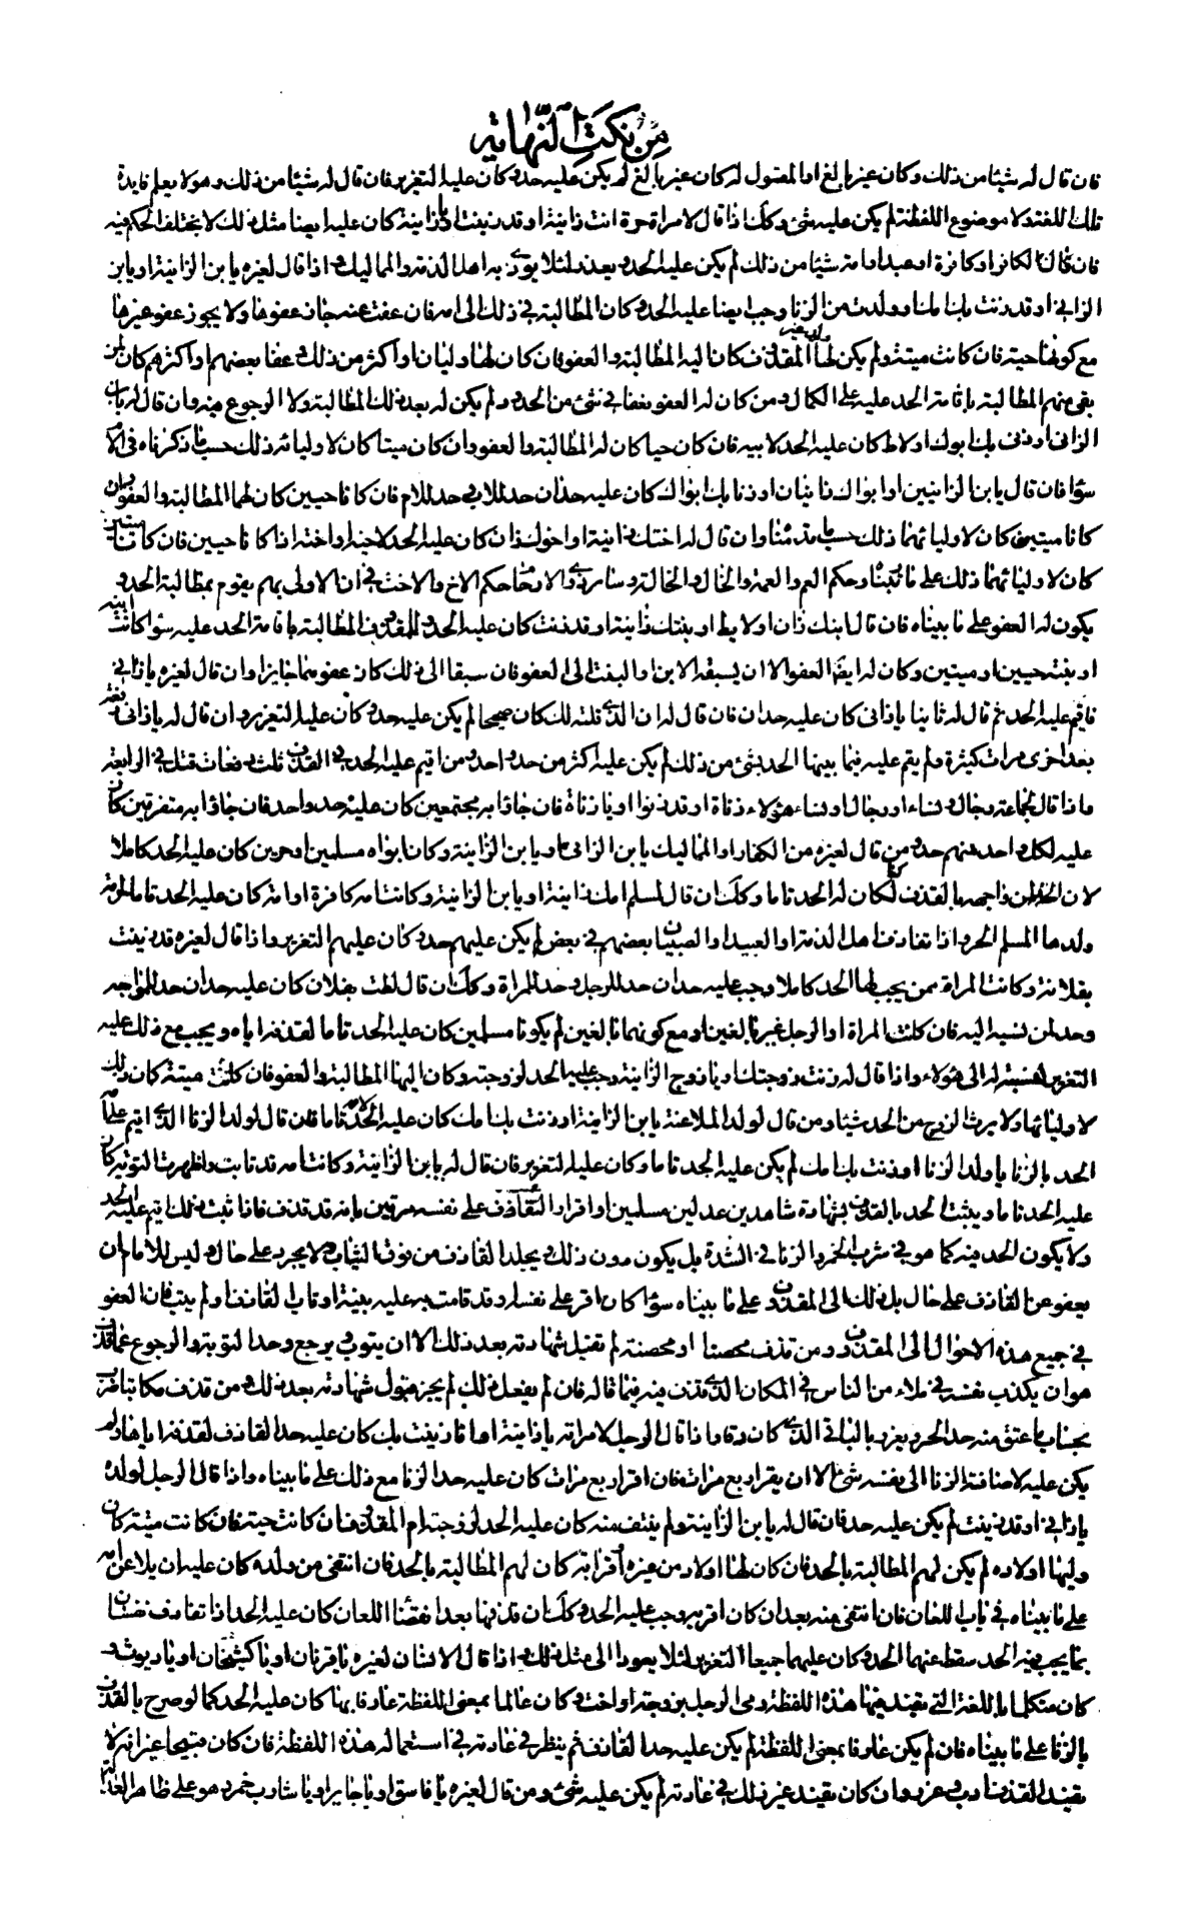 من نكت النهاية
فان قال له شيئا من ذلك وكان غير بالغ او المقول له كان غير بالغ لم يكن عليه حد وكان عليه التعزير فان قال له شيئا من ذلك وهو لا يعلم فايدة
تلك اللفظة ولا موضوع اللفظة لم يكن عليه شئ وكك اذا قال لامراة حرة انت زانية او قد زنيت او يا زانية كان عليه ايضا مثل ذلك لا يختلف الحكم فيه
فان قال لكافر او كافرة او عبد او امة شيئا من ذلك لم يكن عليه الحد ويعزر لئلا يوذى به اهل الذمة والمماليك واذا قال لغيره يا بن الزانية او يا بن
الزانى او قد زنت بك امك او ولدت من الزنا وجب ايضا عليه الحد وكان المطالبة في ذلك الى امه فان عفت عنه جاز عفوها ولا يجوز عفو غيرها
مع كونها حية فان كانت ميتة ولم يكن لها ولى غير المقذوف كان اليه المطالبة والعفو فان كان لها وليان او اكثر من ذلك وعفا بعضهم او اكثرهم كان لمن
بقى منهم المطالبة باقامة الحد عليه على الكمال ومن كان له العفو فعفا في شئ من الحد ولم يكن له بعد ذلك المطالبة ولا الرجوع فيه وان قال له يا بن
الزانى او زنى بك ابوك او لاط كان عليه الحد لابيه فان كان حيا كان له المطالبة والعفو وان كان ميتا كان لاوليائه ذلك حسب ما ذكرناه في الام
سواء فان قال يا بن الزانيين او ابواك زانيان او زنا بك ابواك كان عليه حدان حد للاب وحد للام فان كانا حيين كان لهما المطالبة والعفو وان
كانا ميتين كان لاوليائهما ذلك حسب ما قدمناه وان قال له اختك زانية او اخوك زان كان عليه الحد لاخيه او اخته اذا كانا حيين فان كانا ميتين
كان لاوليائهما ذلك على ما رتبناه وحكم العم والعمة والخال والخالة وساير ذوى الارحام حكم الاخ والاخت في ان الاولى بهم يقوم بمطالبة الحد و
يكون له العفو على ما بيناه فان قال ابنك زان او لايط او بنتك زانية او قد زنت كان عليه الحد وللمقذوف المطالبة باقامة الحد عليه سواء كانت ابنه
او بنته حيين او ميتين وكان له ايضا العفو الا ان يسبقه الابن او البنت الى العفو فان سبقا الى ذلك كان عفوهما جايزا وان قال لغيره يا زانى
فاقيم عليه الحد ثم قال له ثانيا يا زانى كان عليه حدان فان قال له ان الذى قلته لك كان صحيحا لم يكن عليه حد وكان عليه التعزير وان قال له يا زانى دفعة
بعد اخرى مرات كثيرة ولم يقم عليه فيما بينها الحد بشئ من ذلك لم يكن عليه اكثر من حد واحد ومن اقيم عليه الحد في القذف ثلث دفعات قتل في الرابعة
واذا قال لجماعة رجال ونساء او رجال او نساء هؤلاء زناة او قد زنوا او يا زناة فان جاؤا به مجتمعين كان عليه حد واحد فان جاؤا به متفرقين كان
عليه لكل واحد منهم حد ومن قال لغيره من الكفار او المماليك يا بن الزانى او يا بن الزانية وكان ابواه مسلمين او حرين كان عليه الحد كاملا
لان الحد لمن لو واجهه بالقذف لكان له الحد تاما وكك ان قال لمسلم امك زانية او يا بن الزانية وكانت امه كافرة او امة كان عليه الحد تاما لحرمة
ولدها المسلم الحر واذا تقاذف اهل الذمة او العبيد او الصبيان بعضهم في بعض لم يكن عليهم حد وكان عليهم التعزير واذا قال لغيره قد زنيت
بفلانة وكانت المراة ممن يجب لها الحد كاملا وجب عليه حدان حد للرجل وحد للمراة وكك ان قال لطت بفلان كان عليه حدان حد للمواجه
وحد لمن نسبه اليه فان كانت المراة او الرجل غير بالغين او مع كونهما بالغين لم يكونا مسلمين كان عليه الحد تاما لقذفه اياه ويجب مع ذلك عليه
التعزير لنسبته له الى هؤلاء واذا قال له زنت زوجتك او يا زوج الزانية وجب عليه الحد لزوجته وكان اليها المطالبة والعفو فان كانت ميتة كان ذلك
لاوليائها ولا يرث الزوج من الحد شيئا ومن قال لولد الملاعنة يا بن الزانية او زنت بك امك كان عليه الحد لامه تاما فان قال لولد الزنا الذى اقيم على امه
الحد بالزنا يا ولد الزنا او زنت بك امك لم يكن عليه الحد تاما وكان عليه التعزير فان قال له يا بن الزانية وكانت امه قد تابت واظهرت التوبة كان
عليه الحد تاما ويثبت الحد بالقذف بشهادة شاهدين عدلين مسلمين او اقرار القاذف على نفسه مرتين بانه قد قذف فاذا ثبت ذلك اقيم عليه الحد
ولا يكون الحد فيه كما هو في شرب الخمر والزنا في الشدة بل يكون دون ذلك ويجلد القاذف من فوق الثياب ولا يجرد على حال وليس للامام ان
يعفو عن القاذف على حال بل ذلك الى المقذوف على ما بيناه سواء كان اقر على نفسه او قد قامت به عليه بينة او تاب القاذف او لم يتب فان العفو
في جميع هذه الاحوال الى المقذوف ومن قذف محصنا او محصنة لم تقبل شهادته بعد ذلك الا ان يتوب ويرجع وحد التوبة والرجوع عما قذف
هو ان يكذب نفسه في ملاء من الناس في المكان الذى قذف فيه فيما قاله فان لم يفعل ذلك لم يجز قبول شهادته بعد ذلك ومن قذف مكاتبا ضرب
بحساب ما عتق منه حد الحر ويعزر بالباقى الذى كان رقا واذا قال الرجل لامراته يا زانية انا زنيت بك كان عليه حد القاذف لقذفه اياها ولم
يكن عليه لاضافة الزنا الى نفسه شئ الا ان يقر اربع مرات فان اقر اربع مرات كان عليه حد الزنا مع ذلك على ما بيناه واذا قال الرجل لولده
يا زانى او قد زنيت لم يكن عليه حد فان قال له يا بن الزانية ولم ينتف منه كان عليه الحد لزوجته ام المقذوف ان كانت حية فان كانت ميتة كان
وليها اولاده لم يكن لهم المطالبة بالحد فان كان لها اولاد من غيره او قرابة كان لهم المطالبة بالحد فان انتفى من ولده كان عليه ان يلاعن امه
على ما بيناه في باب اللعان فان انتفى منه بعد ان كان اقر به وجب عليه الحد وكك ان قذفها بعد انقضاء اللعان كان عليه الحد اذا تقاذف نفسان
بما يجب فيه الحد سقط عنهما الحد وكان عليهما جميعا التعزير لئلا يعودا الى مثل ذلك واذا قال الانسان لغيره يا قرنان او يا كشخان او يا ديوث و
كان متكلما باللغة التى يفيد فيها هذه اللفظة رمى الرجل بزوجته او اخته وكان عالما بمعنى اللفظة عارفا بها كان عليه الحد كما لو صرح بالقذف
بالزنا على ما بيناه فان لم يكن عارفا بمعنى اللفظة لم يكن عليه حد القاذف ثم ينظر في عادته في استعماله هذه اللفظة فان كان قبيحا غير انه لا
يفيد القذف ادب وعزر وان كان يفيد غير ذلك في عادته لم يكن عليه شئ ومن قال لغيره يا فاسق او يا جاير او يا شارب خمر وهو على ظاهر العدالة